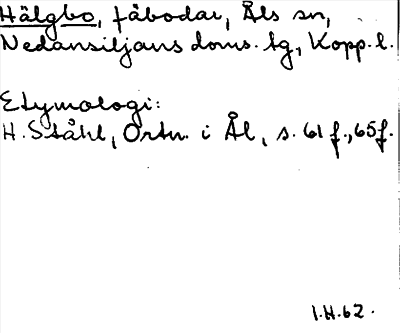 Hälgbo, fäbodar, Åls sn,
Nedansiljans doms. tg, Kopp. l.
Etymologi:
H. Ståhl, Ortn. i Ål, s. 61 f., 65 f.
1.H.62.